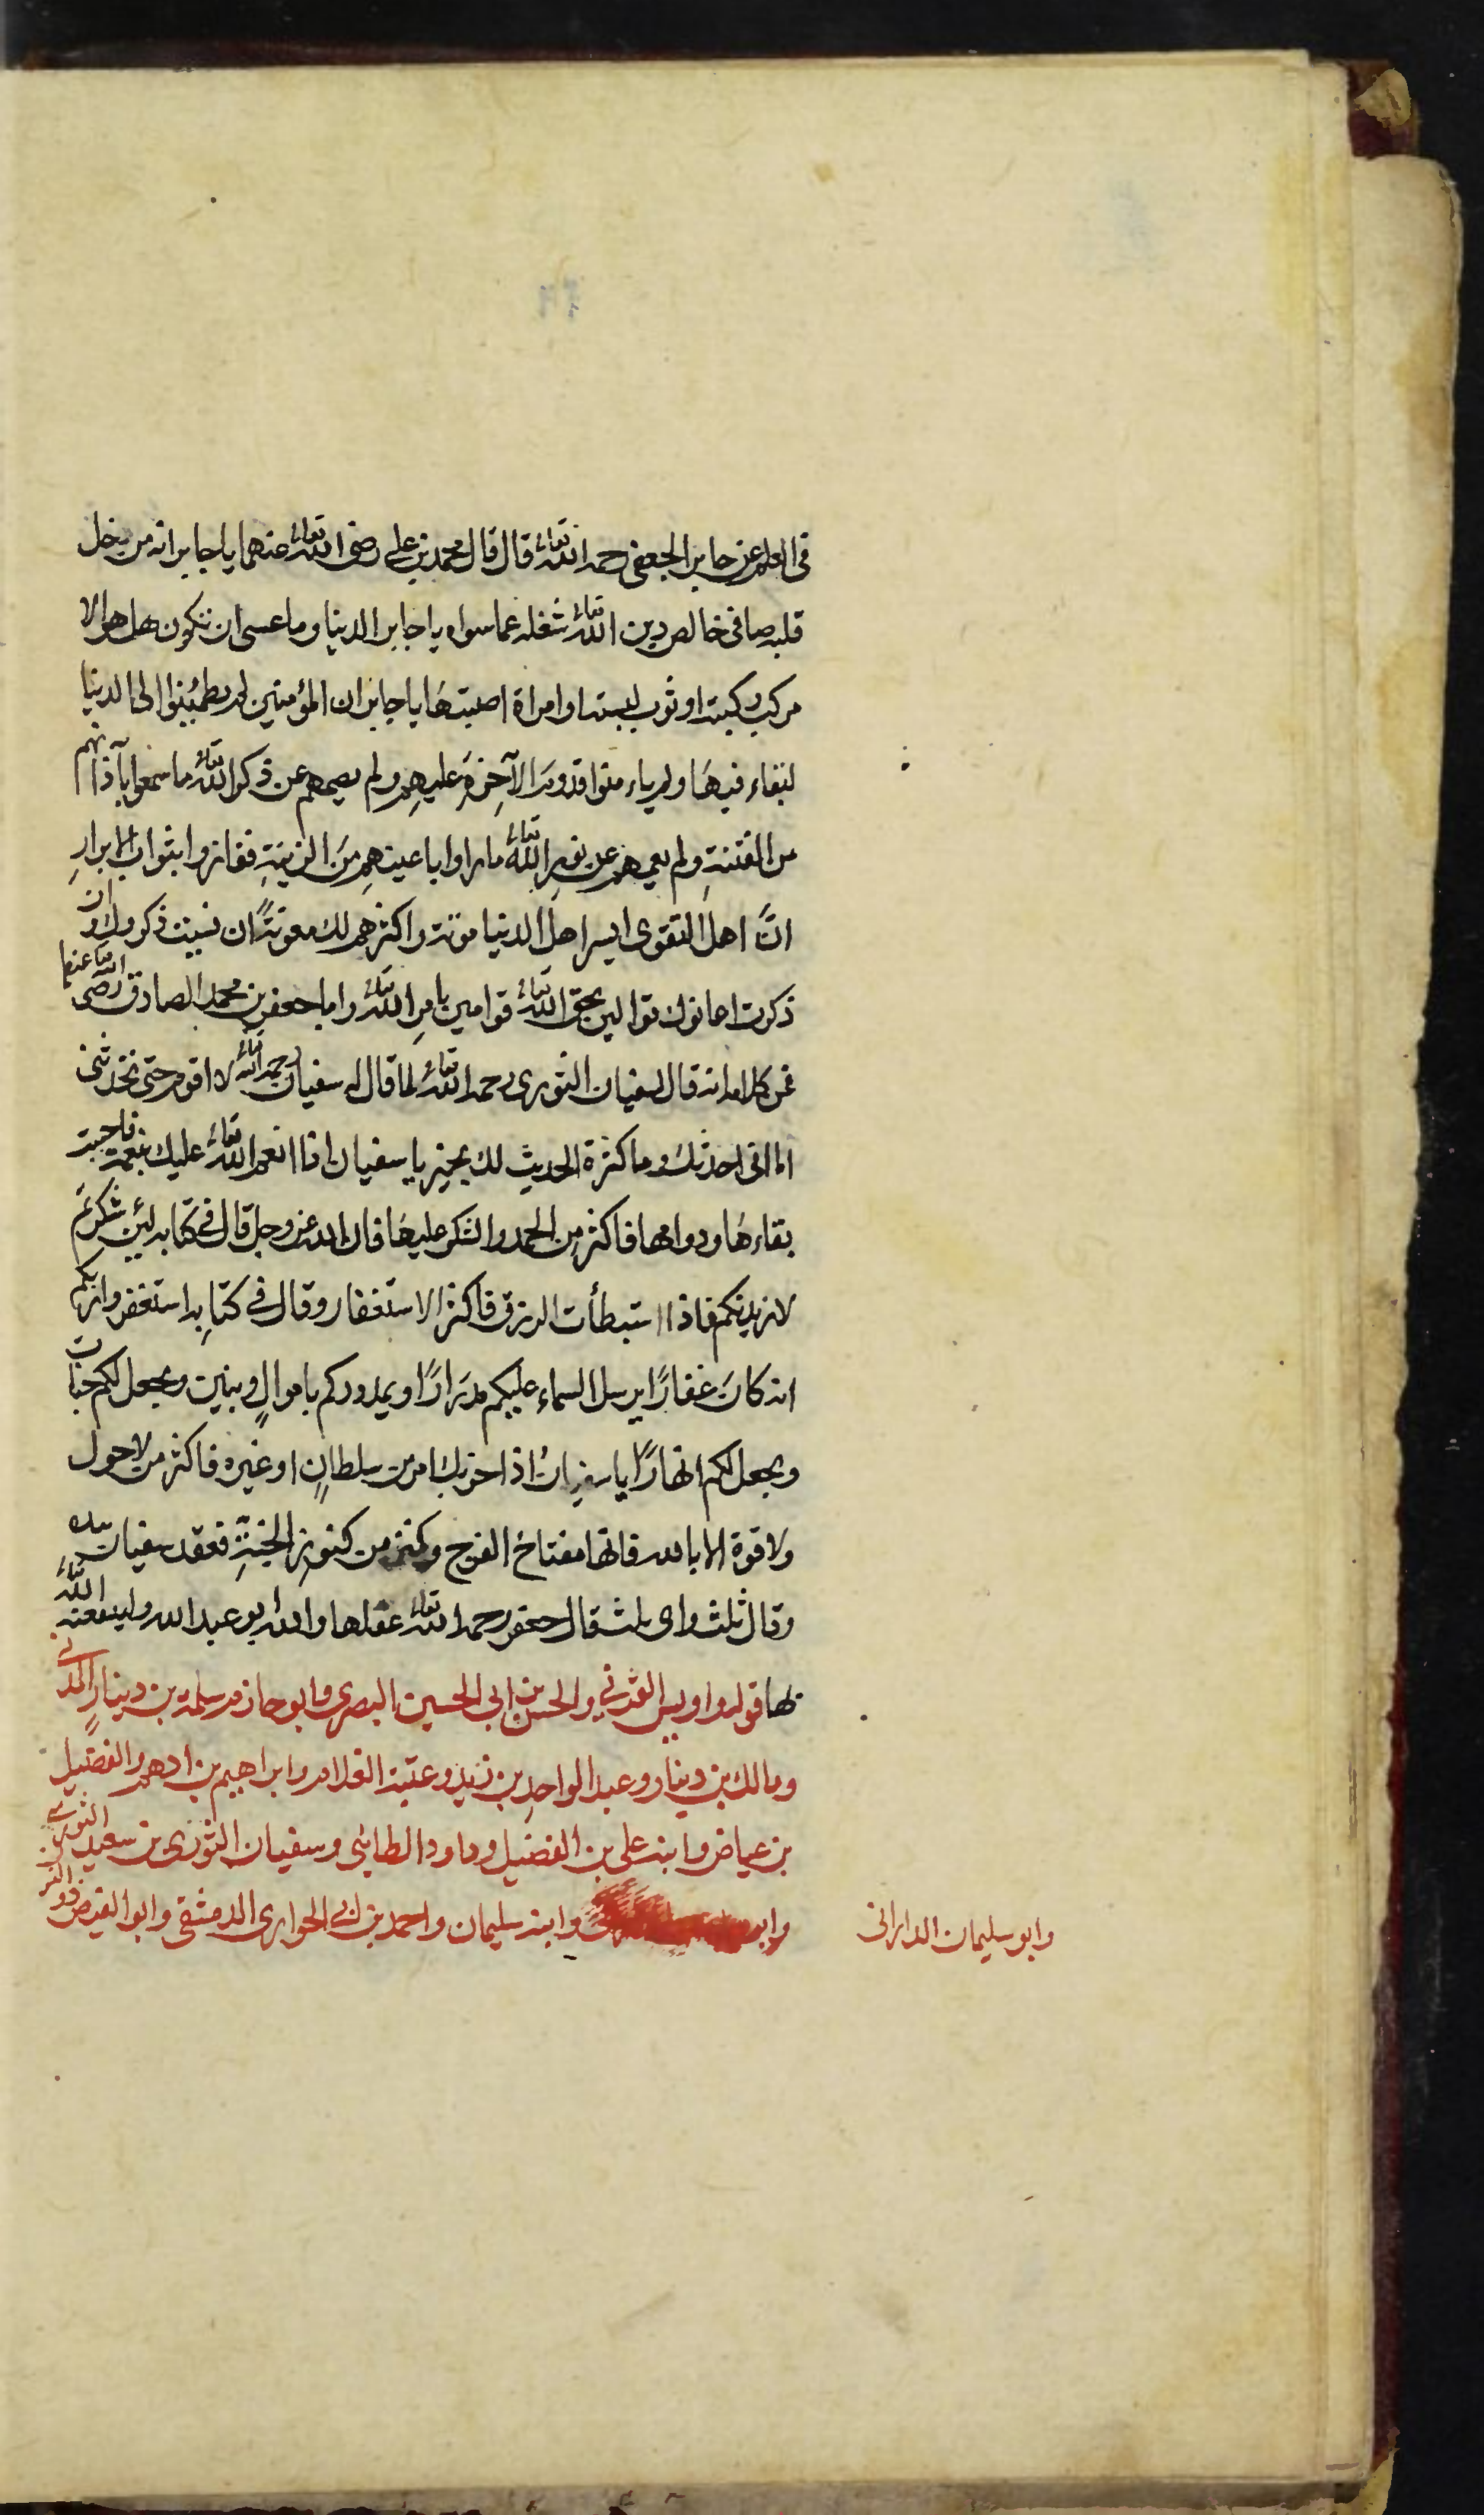 في العلم عن جابر الجعفي رحمه الله تعالى قال قال محمد بن علي رضي الله تعالى عنهما يا جابر انه من دخل
قلبه صافي خالص دين الله تعالى شغله عما سواه يا جابر الدنيا وما عسى ان تكون هل هو الا
مركب ركبته او ثوب لبسته او امراة اصبتها يا جابر ان المؤمنين لم يطمئنوا الى الدنيا
لبقاء فيها ولم ياءمنوا قدوم الآخرة عليهم ولم يصمهم عن ذكر الله تعالى ما سمعوا بآذانهم
من الفتنة ولم يعمهم عن نور الله تعالى ما راوا باعينهم من الزينة ففازوا بثواب الابرار
انّ اهل التقوى ايسر اهل الدنيا مونة واكثرهم لك معونةً ان نسيت ذكروك وان
ذكرت اعانوك قوالين بحق الله تعالى قوامين بامر الله تعالى واما جعفر بن محمد الصادق رضي الله تعالى عنهما
فمن كلامه انه قال لسفيان الثوري رحمه الله تعالى لما قال له سفيان رحمه الله تعالى لا اقوم حتى تحدثني
اما اني احدثك وما كثرة الحديث لك بخير يا سفيان اذا انعم الله تعالى عليك بنعمة فاحببت
بقاءها ودوامها فاكثر من الحمد والشكر عليها فان الله عز وجل قال في كتابه لئن شكرتم
لازيدنكم فاذا استبطأت الرزق فاكثر الاستغفار وقال في كتابه استغفروا ربكم
انه كان غفارًا يرسل السماء عليكم مدرارًا ويمددكم باموالٍ وبنين ويجعل لكم جنات
ويجعل لكم انهارًا يا سفيان اذا احزبك امر من سلطانٍ او غيره فاكثر من لا حول
ولا قوة الا بالله فانها مفتاح الفرج وكنز من كنوز الجنة فعقد سفيان بيده
وقال ثلث واي ثلث قال جعفر رحمه الله تعالى عقلها والله ابو عبد الله ولينفعنه الله تعالى
بها قوله واويس القرني والحسن بن ابي الحسين البصري وابو حازم سلمة بن دينارٍ المدني
ومالك بن دينار وعبد الواحد بن زيد وعتبة الغلام وابراهيم بن ادهم والفضيل
بن عياض وابنه علي بن الفضيل وداود الطائي وسفيان الثوري بن سعيد الثوري
وابو وابنه سليمان واحمد بن ابي الحواري الدمشقي وابو الفيض ذو النون
وابو سليمان الداراني